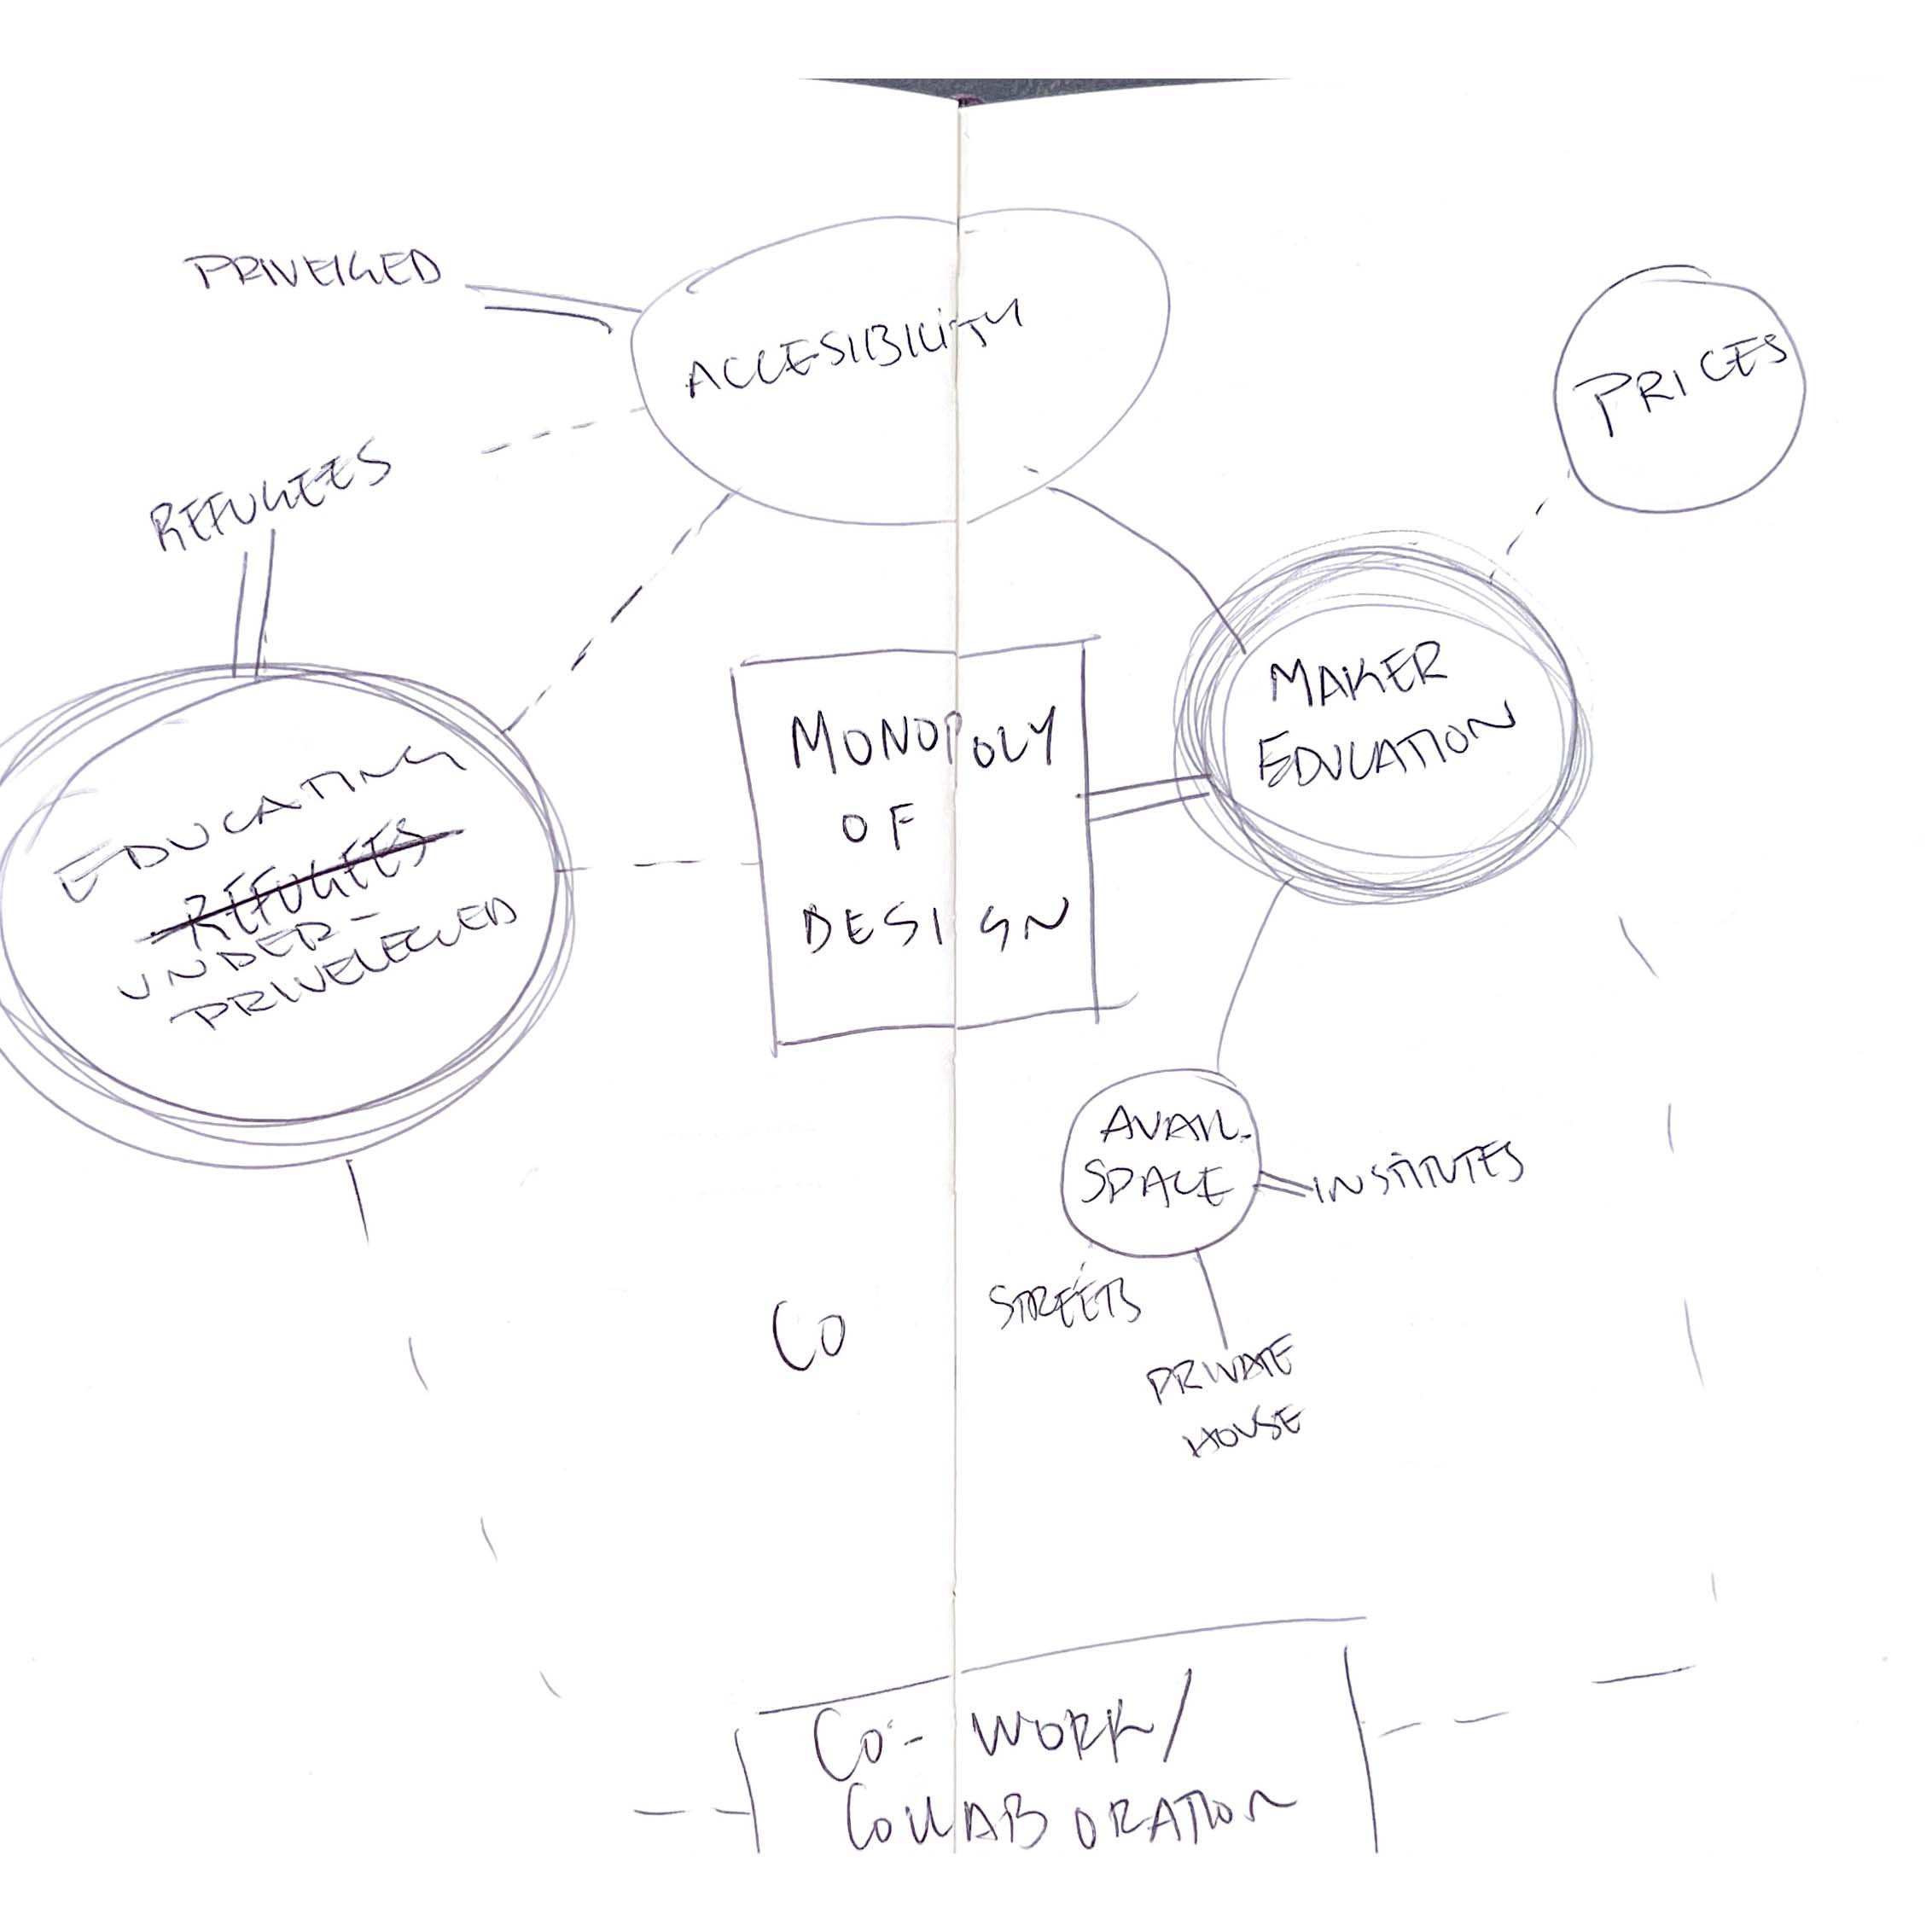 PRIVEIGED
ACCESIBILITY
PRICES
REFUGEES
MAKER
EDUCATION
MONOPOLY
OF
DESIGN
EDUCATING
REFUGEES
UNDER-
PRIVELEGED
AVAIL.
SPACE
INSTITUTES
STREETS
PRIVATE
HOUSE
CO
CO- WORK/
COLLABORATION